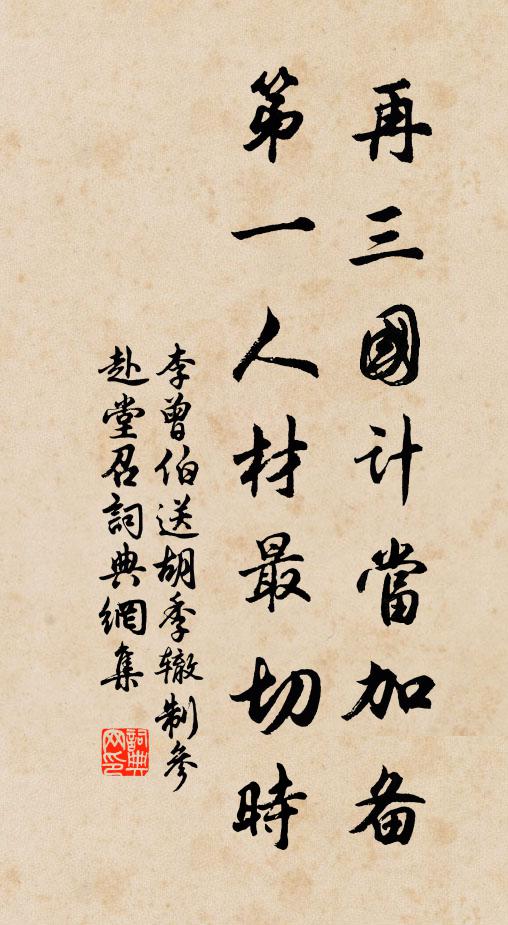 再三國计當加备
第一人材最切時
李曾伯送胡季辙制參
赴堂召詞典網集
詞典网印